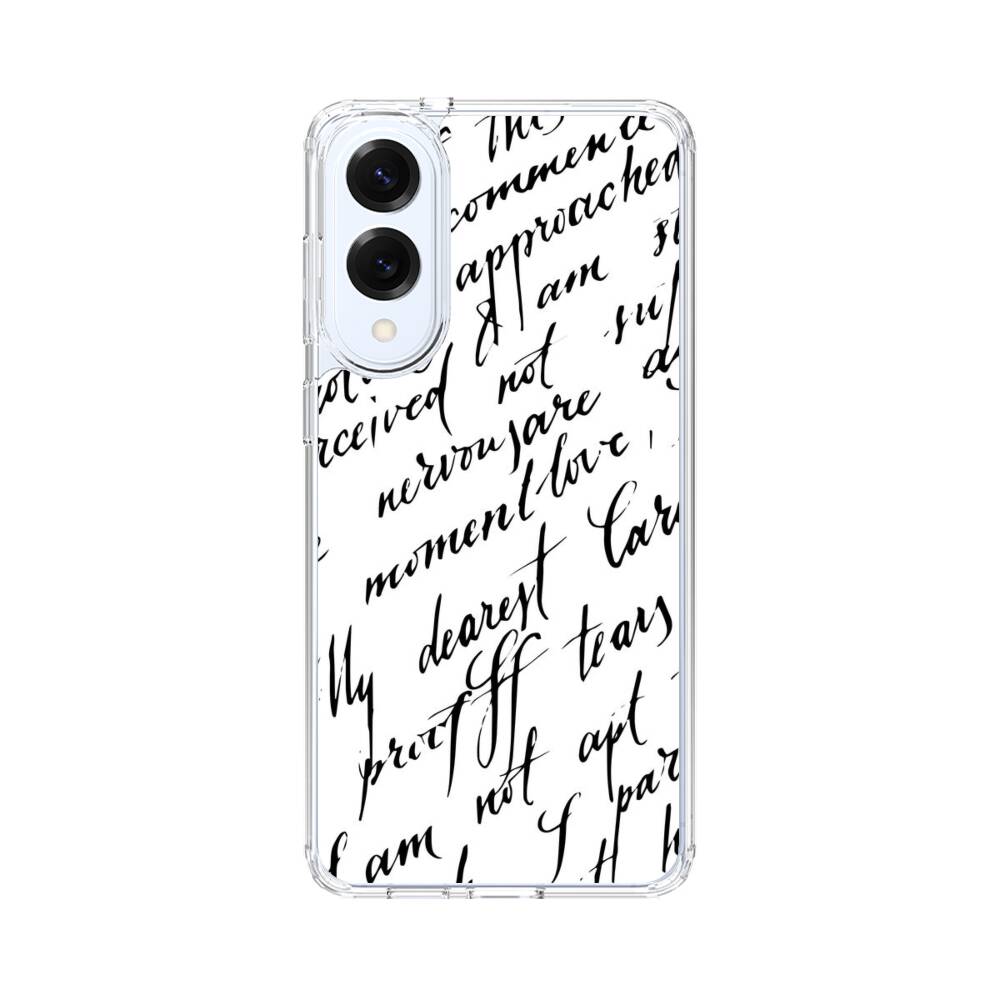 this
commence
approached
& I am
rceived not
nervous are
moment love,
My dearest Car
proof tears
not apt
I am I par